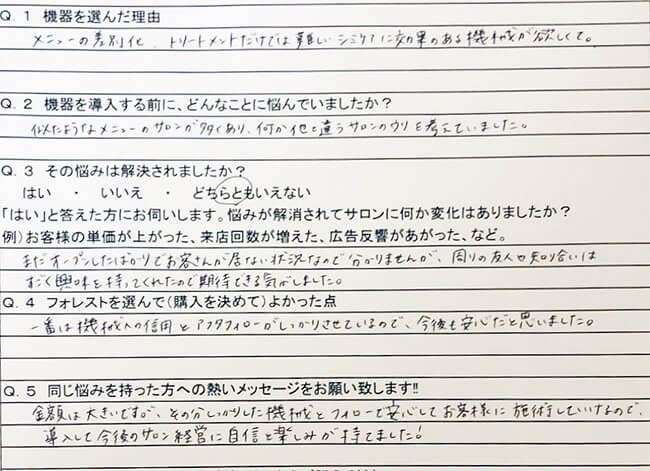 Q.1 機器を選んだ理由
メニューの差別化、トリートメントだけでは難しいシミケアに効果のある機械が欲しくて。
Q.2 機器を導入する前に、どんなことに悩んでいましたか？
似たようなメニューのサロンが多くあり、何か他と違うサロンのウリを考えていました。
Q.3 その悩みは解決されましたか？
はい ・ いいえ ・ どちらともいえない
「はい」と答えた方にお伺いします。悩みが解消されてサロンに何か変化はありましたか？
例）お客様の単価が上がった、来店回数が増えた、広告反響があがった、など。
まだオープンしたばかりでお客さんが居ない状況なので分かりませんが、周りの友人や知り合いは
すごく興味を持ってくれたので期待できる気がしました。
Q.4 フォレストを選んで（購入を決めて）よかった点
一番は機械への信用とアフタフォローがしっかりさせているので、今後も安心だと思いました。
Q.5 同じ悩みを持った方への熱いメッセージをお願い致します!!
金額は大きいですが、その分しっかりした機械とフォローで安心してお客様に施術していけるので、
導入して今後のサロン経営に自信と楽しみが持てました！